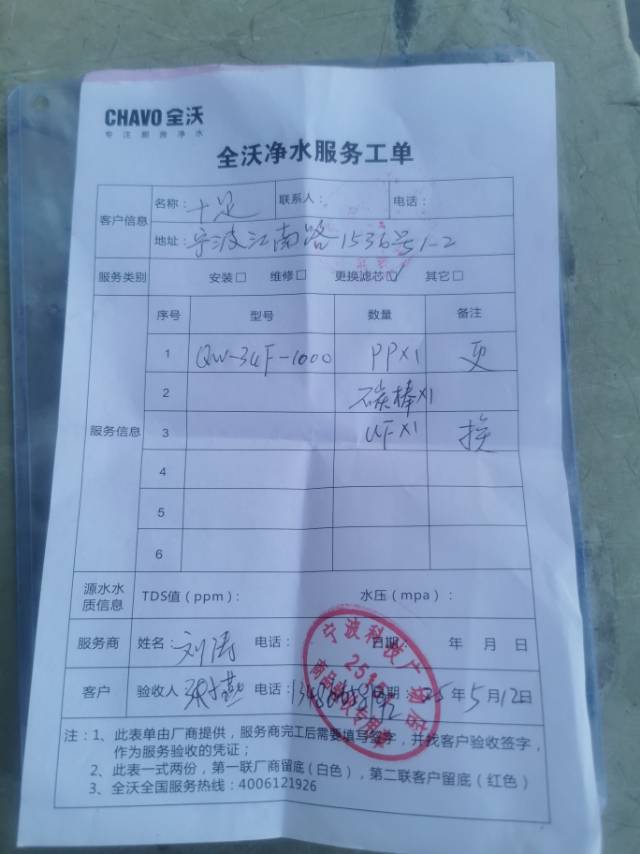 CHAVO 全沃
专注厨房净水
全沃净水服务工单
客户信息 名称: 十足 联系人: 电话:
地址: 宁波江南路1536号1-2
服务类别 安装□ 维修□ 更换滤芯☑ 其它□
服务信息 序号 型号 数量 备注
1 QW-34F-1000 PP×1 更
2 碳棒×1
3 UF×1 换
4
5
6
源水水质信息 TDS值(ppm): 水压(mpa):
服务商 姓名: 刘涛 电话: 日期: 年 月 日
客户 验收人 电话: 日期: 25年5月12日
宁波科技广场店
2515
专用章
注: 1、此表单由厂商提供,服务商完工后需要填写签字,并找客户验收签字,
作为服务验收的凭证;
2、此表一式两份,第一联厂商留底(白色),第二联客户留底(红色)
3、全沃全国服务热线: 4006121926